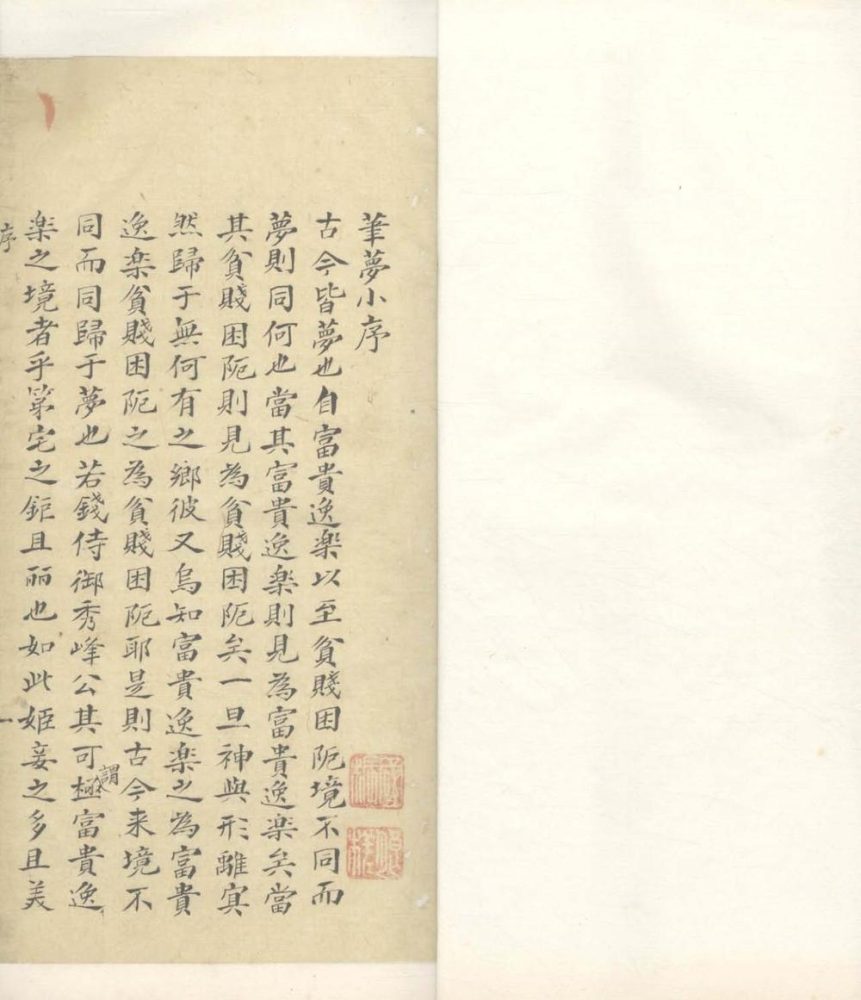 筆夢小序
古今皆夢也自富貴逸楽以至貧賤困阨境不同而
夢則同何也當其富貴逸楽則見為富貴逸楽矣當
其貧賤困阨則見為貧賤困阨矣一旦神與形離寘
然歸于無何有之鄉彼又烏知富貴逸楽之為富貴
逸楽貧賤困阨之為貧賤困阨耶是則古今来境不
同而同歸于夢也若錢侍御秀峰公其可謂極富貴逸
楽之境者乎第宅之鉅且丽也如此姬妾之多且美
序 一